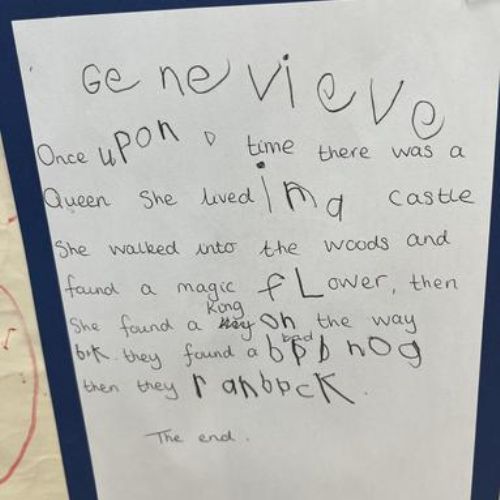 Genevieve
Once upon a time there was a
Queen She lived in a castle
She walked into the woods and
found a magic flower, then
King
She found a on the way
bad
bck. they found a bad nog
then they ranback.
The end.